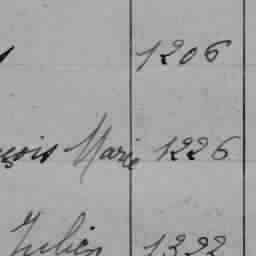 1206
çois Marie 1226
Julien 1322